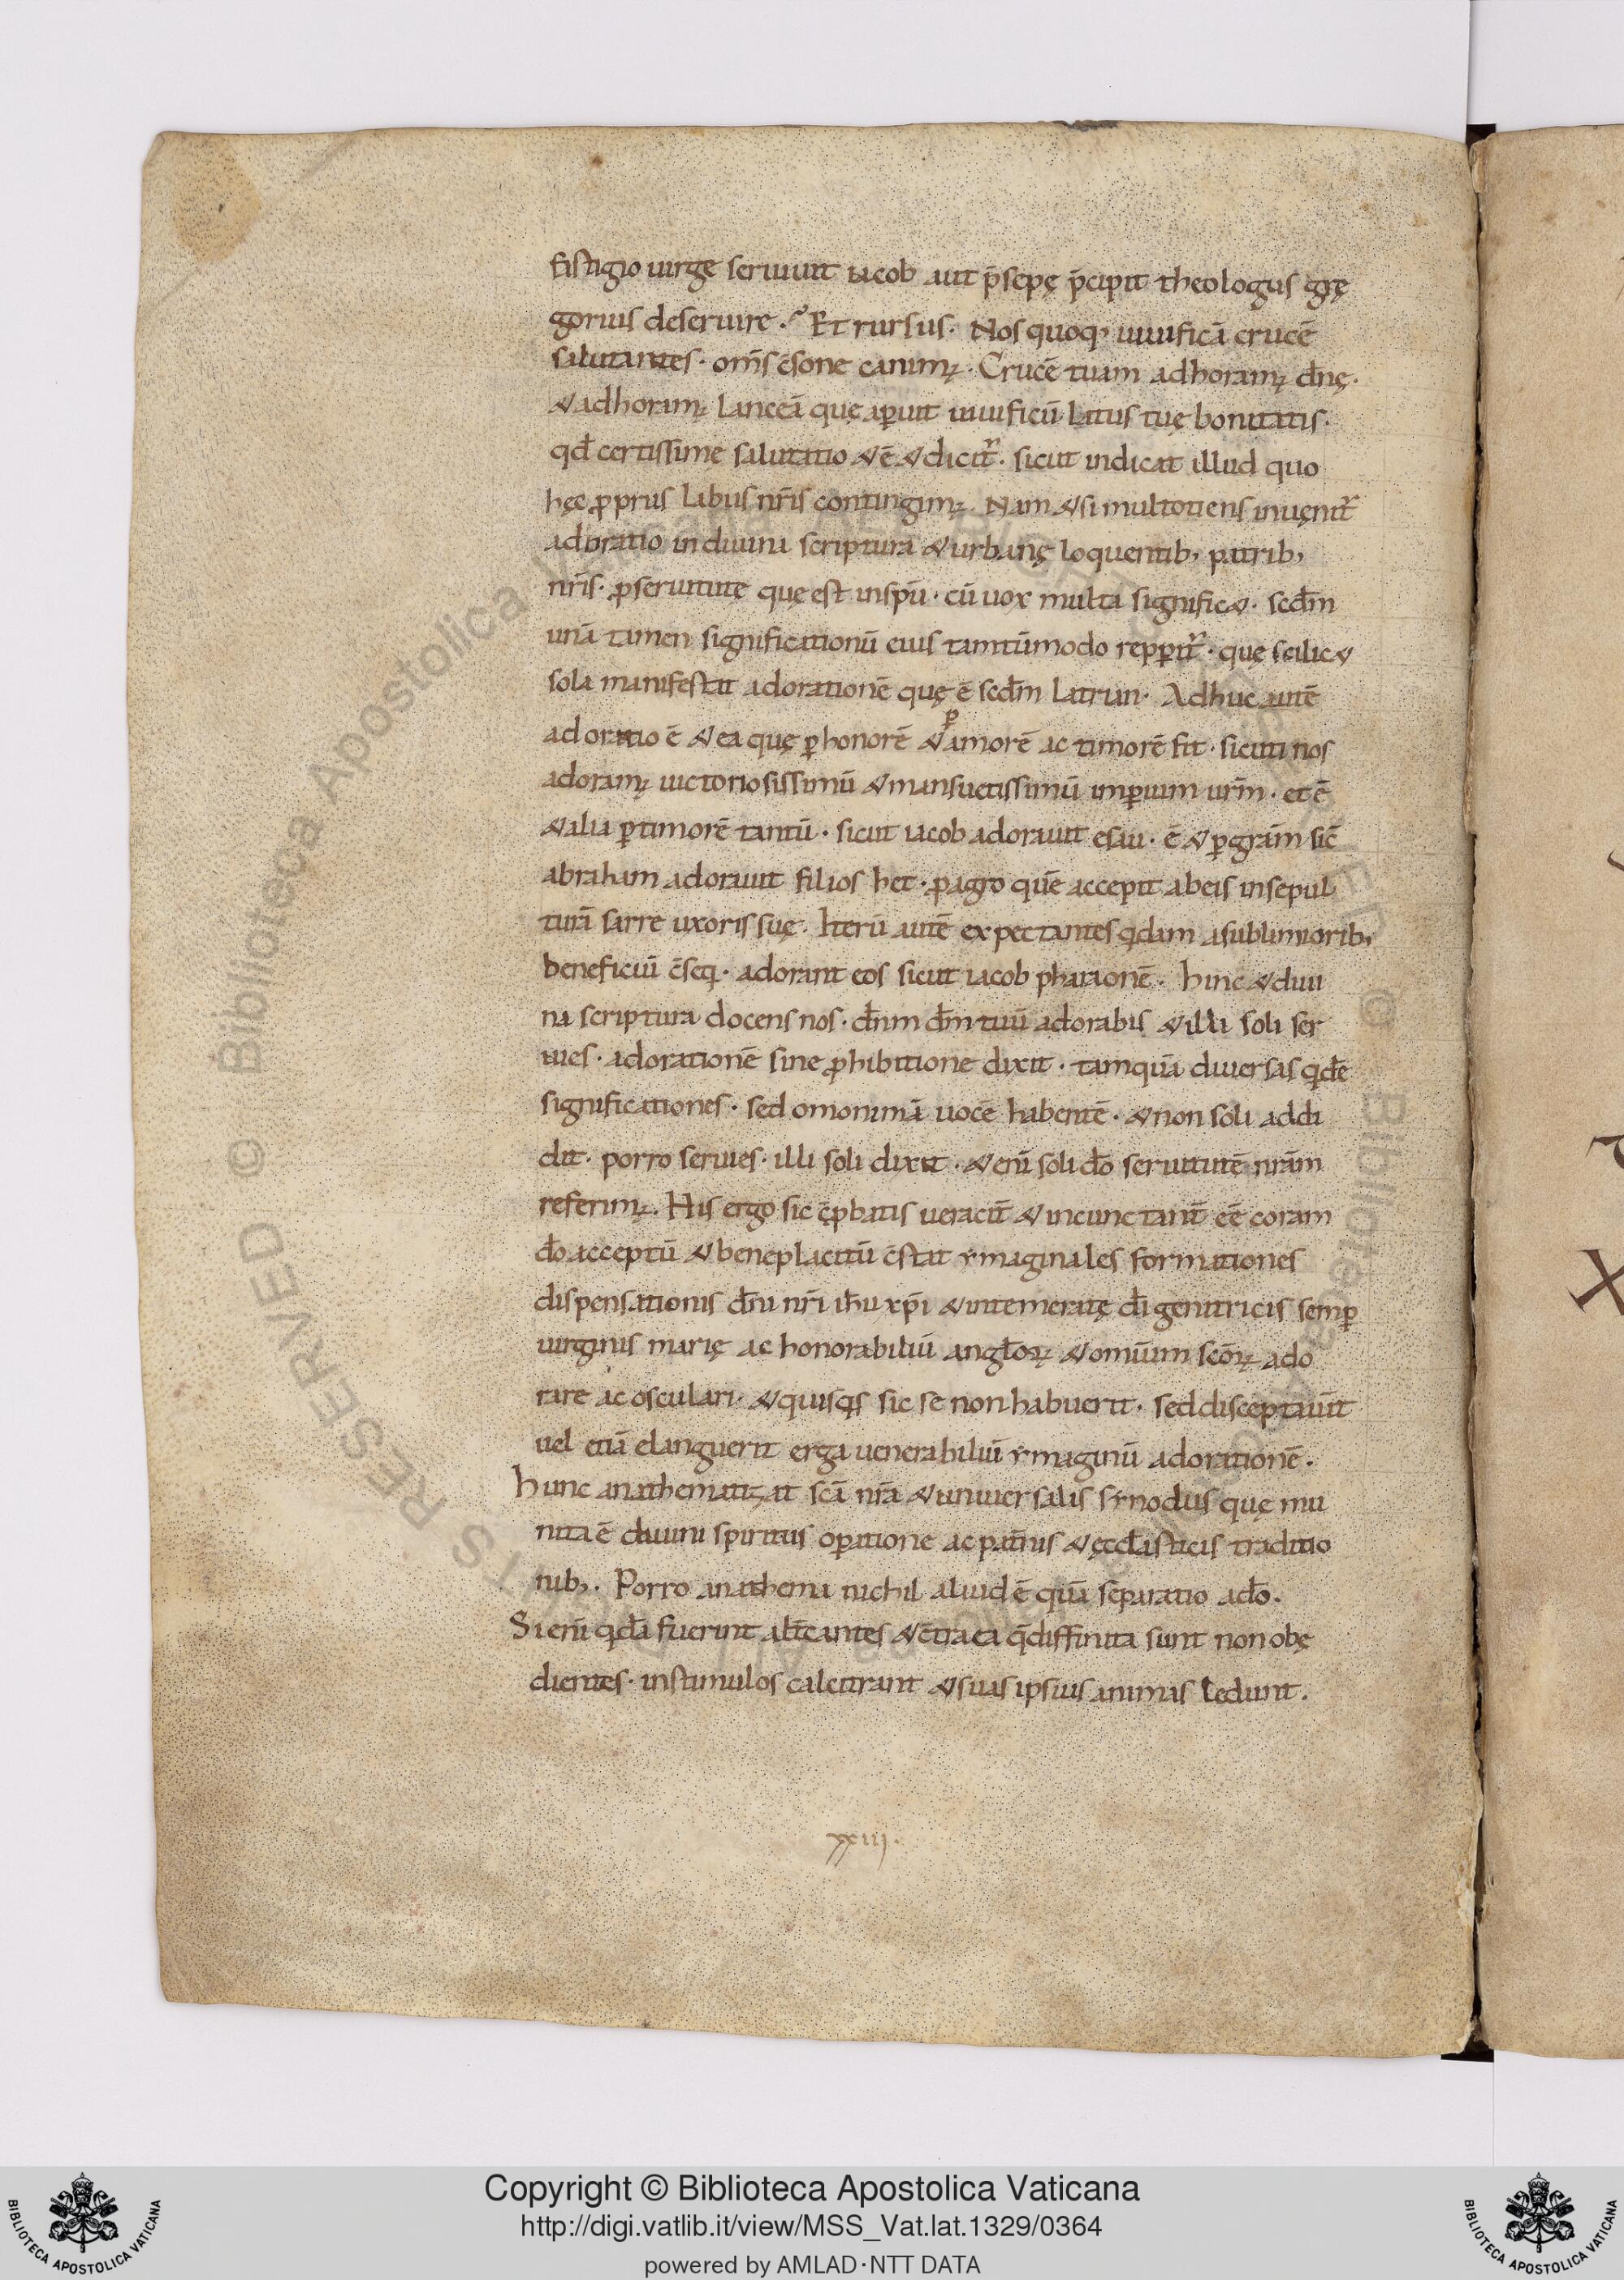 fastigio uirgę seruiuit iacob aut p̄sepę p̄cipit theologus gre
gorius deseruire. Et rursus. Nos quoq; uiuificā crucē
salutantes. om̄s c̄sone canimꝰ. Crucē tuam adhoramꝰ dn̄e.
& adhoramꝰ lanceā quę aꝑuit uiuificū latus tuę bonitatis.
qđ certissime salutatio & ē & dicit̃. sicut indicat illud quo
hęc ꝓpriis labiis nr̄is contingimꝰ. Nam & si multotiens inuenit̃
adoratio in diuina scriptura & urbanę loquentib; patrib;
nr̄is. ꝓ seruitute quę est in sp̄u. cū uox multa significa&. scđm
unā tamen significationū eius tantūmodo repꝑit̃. quę scilic&
sola manifestat adorationē quę ē scđm latriam. Adhuc autē
adoratio ē & ea quę ꝑ honorē & ꝑ amorē ac timorē fit. sicuti nos
adoramꝰ uictoriosissimū & mansuetissimū imꝑium ur̄m. et ē
& alia ꝑ timorē tantū. sicut iacob adorauit esau. ē & ꝑ gr̄am sic̄
abraham adorauit filios het. ꝓ agro quē accepit ab eis in sepul
turā sarre uxoris suę. Iterū autē expectantes qdam a sublimiorib;
beneficiū c̄seq. adorant eos sicut iacob pharaonē. Hinc & diui
na scriptura docens nos. dn̄m dm̄ tuū adorabis & illi soli ser
uies. adorationē sine ꝓhibitione dixit. tamquā diuersas qdē
significationes. sed omonimā uocē habentē. & non soli addi
dit. porro seruies. illi soli dixit. & enī soli dō seruitutē nr̄am
referimꝰ. His ergo sic c̄ꝓbatis ueracit̄ & incunctant̄ eē coram
dō acceptū & beneplacitū c̄stat ymaginales formationes
dispensationis dn̄i nr̄i ih̄u xp̄i & intemeratę dī genitricis semꝑ
uirginis marię ac honorabiliū angl̄oꝝ & omniūm sc̄oꝝ ado
rare ac osculari. & quisqs sic se non habuerit. sed disceptauit
uel etiā elanguerit erga uenerabiliū ymaginū adorationē.
Hunc anathematizat sc̄a nr̄a & uniuersalis synodus quę mu
nita ē diuini spiritus oꝑatione ac pat̄nis & ęccl̄asticis traditio
nib;. Porro anathema nichil aliud ē quā separatio a dō.
Si enī qdā fuerint alt̄cantes & c̄tra ea q̄ diffinita sunt non obę
dientes. in stimulos calcitrant & suas ipsius animas ledunt.
xxiii.
© Biblioteca Apostolica Vaticana
RESERVED
Copyright © Biblioteca Apostolica Vaticana
http://digi.vatlib.it/view/MSS_Vat.lat.1329/0364
powered by AMLAD·NTT DATA
BIBLIOTECA APOSTOLICA VATICANA
BIBLIOTECA APOSTOLICA VATICANA